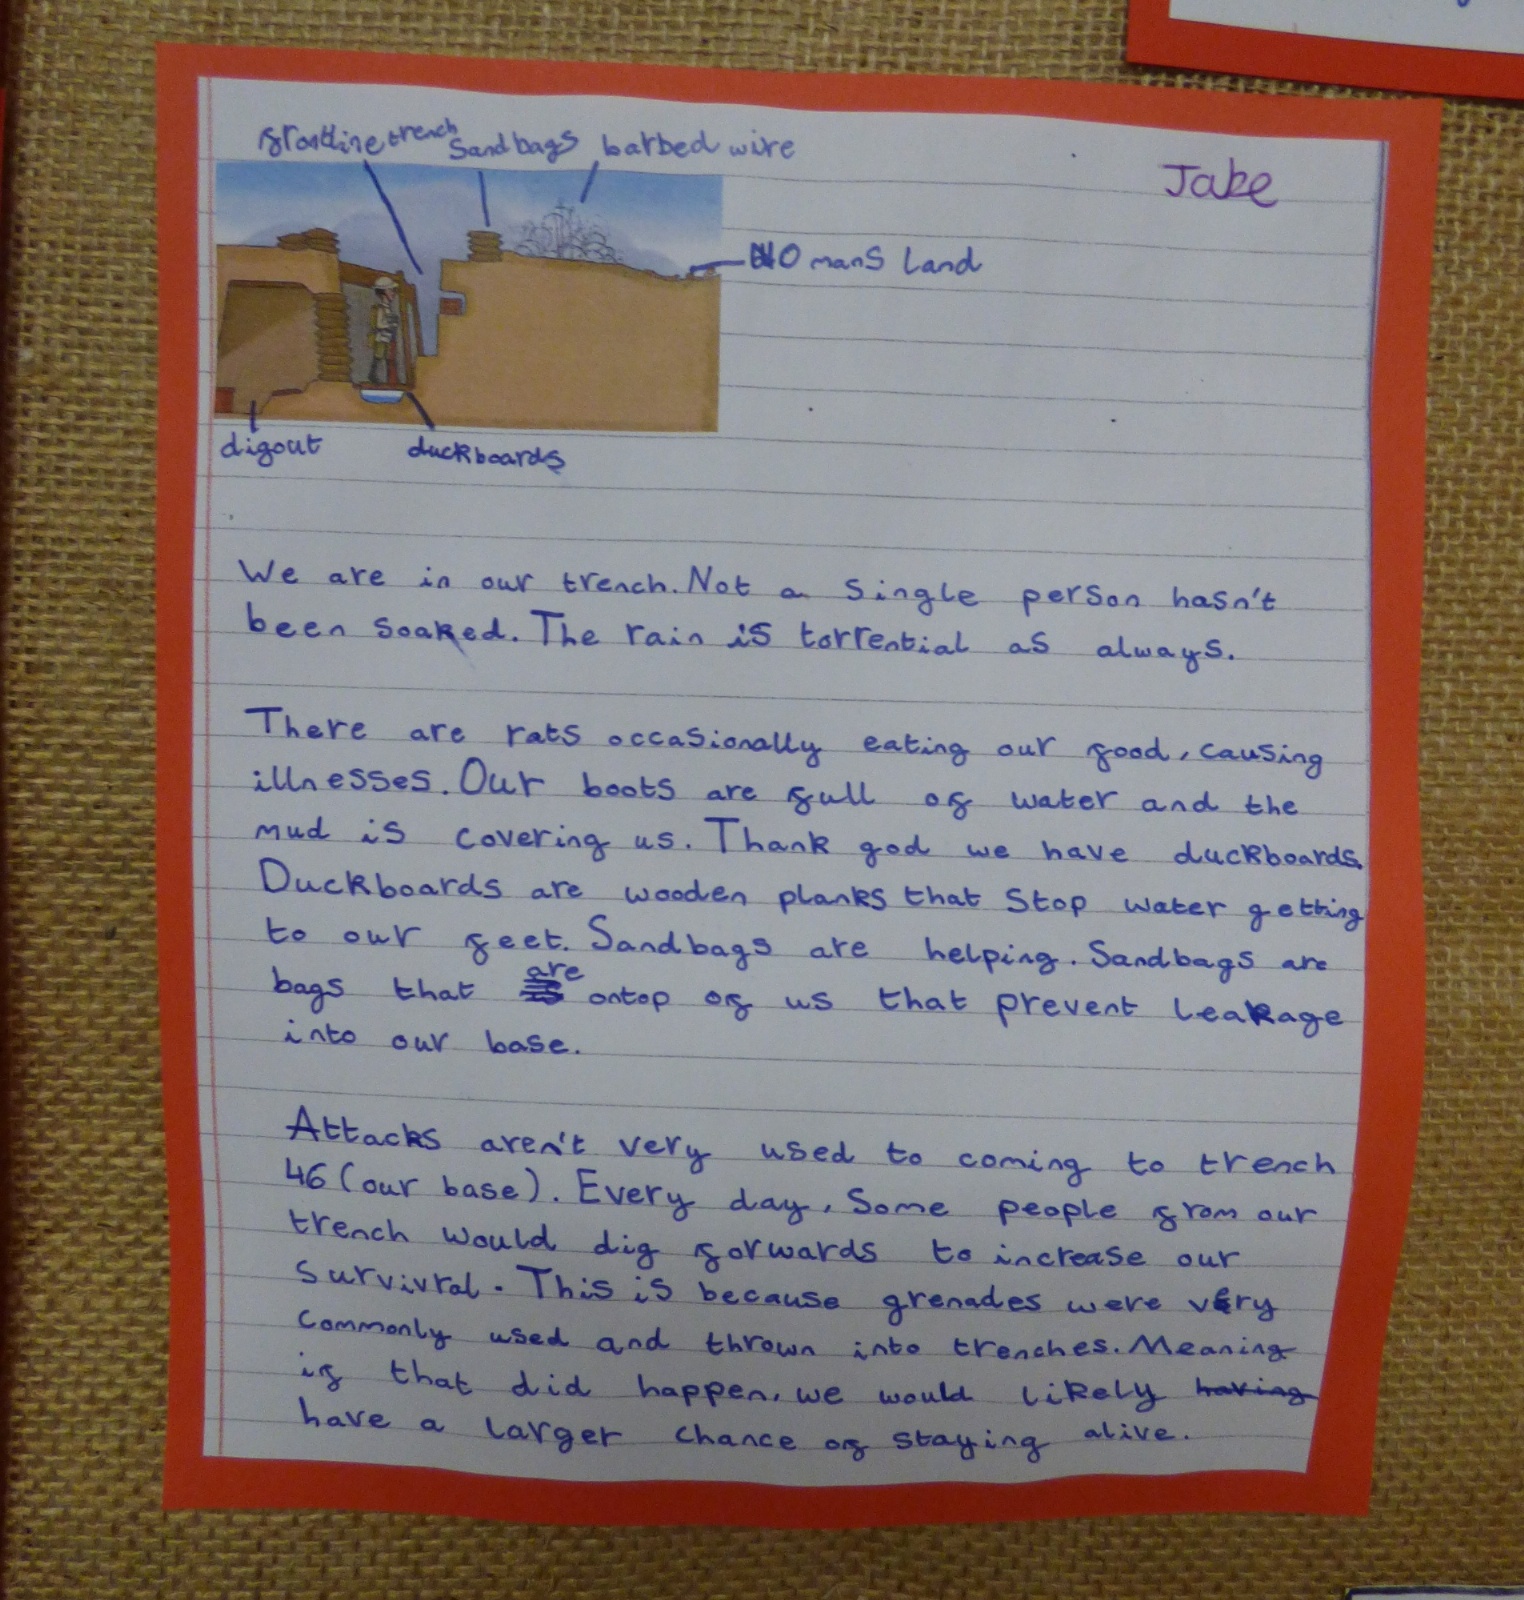 frontline trench
Sandbags
barbed wire
Jake
NO mans land
digout
duckboards
We are in our trench. Not a single person hasn't
been soaked. The rain is torrential as always.
There are rats occasionally eating our food, causing
illnesses. Our boots are full of water and the
mud is covering us. Thank god we have duckboards.
Duckboards are wooden planks that stop water getting
to our feet. Sandbags are helping. Sandbags are
bags that are ontop of us that prevent leakage
into our base.
Attacks aren't very used to coming to trench
46 (our base). Every day, some people from our
trench would dig forwards to increase our
survivral. This is because grenades were very
commonly used and thrown into trenches. Meaning
if that did happen, we would likely having
have a larger chance of staying alive.